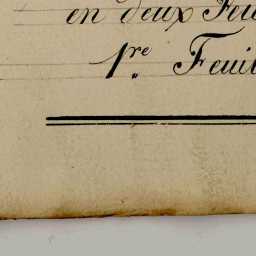 en deux Feui
1.re Feuil